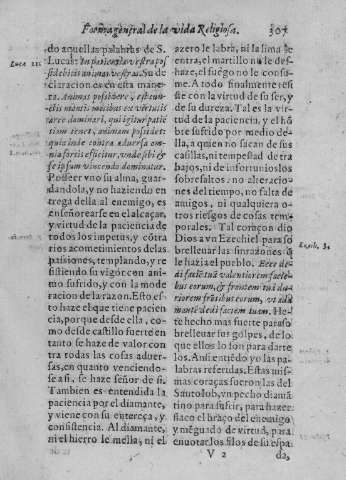 Forma general de la vida Religiosa. 307
do aquellas palabras de S.
Lucas: In patientia vestra pos
Luca 21.
sidebitis animas vestras. Su de
claracion es en esta mane
ra. Animas possidere, est cunctis
mentis motibus ex virtutis
arce dominari, qui igitur patiẽ
tiam tenet, animam possidet:
quia inde contra aduersa om-
nia fortis efficitur, vnde sibi &
se ipsum vincendo dominatur.
Posseer vno su alma, guar
dandola, y no haziendo en
trega della al enemigo, es
enseñorearse en el alcaçar,
y virtud de la paciencia de
todos los impetus, y cõtra
rios acometimientos de las
passiones, templando, y re
sistiendo su vigor con ani
mo sufrido, y con la mode
racion de la razon. Esto es-
to haze el que tiene pacien
cia, porque desde ella, co-
mo desde castillo fuerte en
tanto se haze de valor con
tra todas las cosas aduer-
sas, en quanto venciendo-
se a si, se haze señor de si.
Tambien es entendida la
paciencia por el diamante,
y viene con su entereça, y
consistencia. Al diamante,
ni el hierro le mella, ni el
azero le labra, ni la lima le
entra, el martillo no le des-
haze, el fuego no le consu-
me. A todo finalmente resi
ste con la virtud de su ser, y
de su dureza. Tal es la vir-
tud de la paciencia, y el hõ
bre sufrido por medio de-
lla, a quien no sacan de sus
casillas, ni tempestad de tra
bajos, ni de infortunios los
sobresaltos: no alteracio-
nes del tiempo, no falta de
amigos, ni qualquiera o-
tros riesgos de cosas tem-
porales. Tal coraçon dio
Dios a vn Ezechiel para so
Ezech. 3.
brelleuar las sinrazones q̃
le hazia el pueblo. Ecce de-
di faciẽ tuã valentiorem facie-
bus eorum, & frontem tuã du-
riorem frõtibus eorum, vt ada
mantẽ dedi faciem tuam. He-
te hecho mas fuerte para so
brelleuar sus golpes, de lo
que ellos lo son para darte
los. Ansi entiẽdo yo las pa-
labras referidas. Estas mis-
mas coraças fueron las del
Santo Iob, vn pecho diamã
tino para sufrir, para hazer
flaco el braço del enemigo,
y mẽguado de virtud, para
enuotar los filos de su espa-
V 2 da,